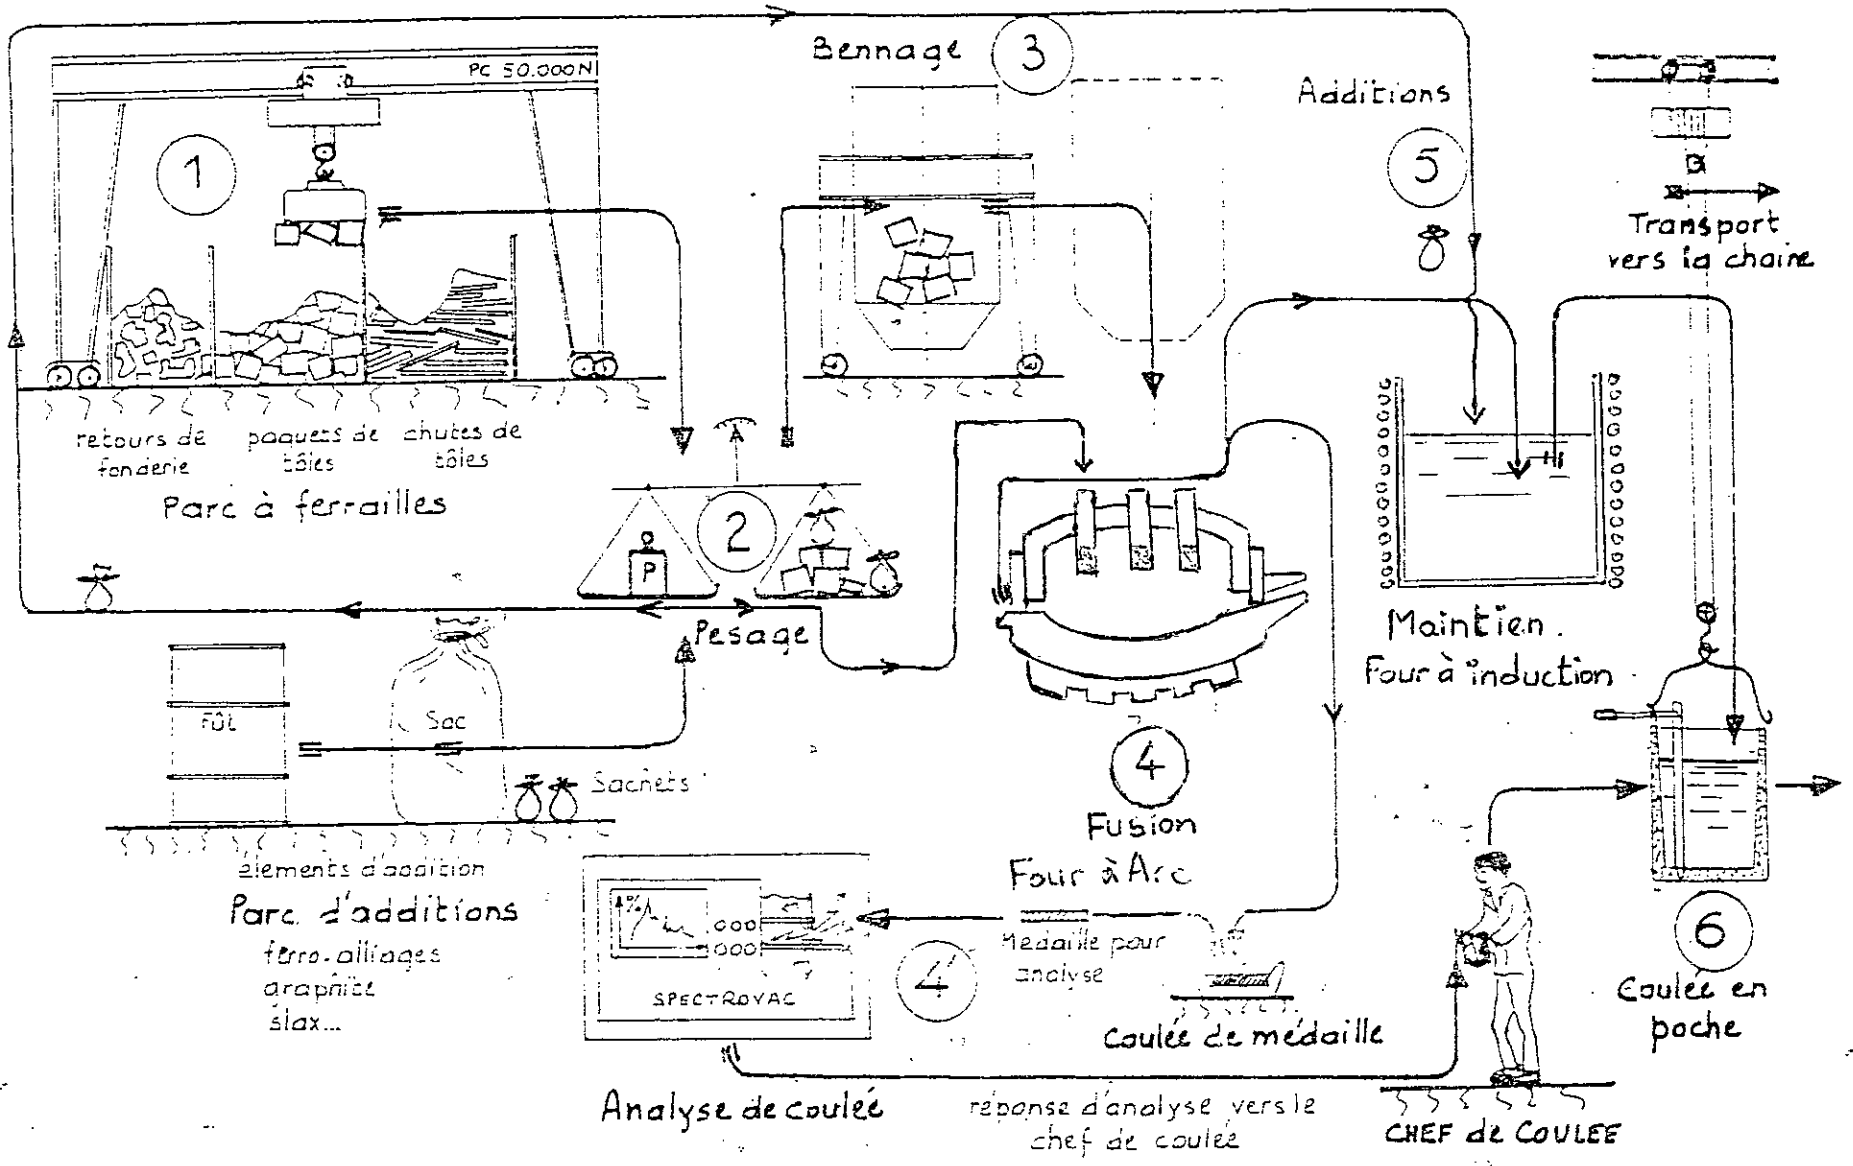 PC 50.000N
1
Bennage
3
Additions
5
Transport
vers la chaine
retours de
fonderie
paquets de
tôles
chutes de
tôles
Parc à ferrailles
A
2
P
Pesage
Maintien.
Four à induction
FÛT
Sac
Sachets
élements d'addition
Parc d'additions
ferro-alliages
graphite
slax...
4
Fusion
Four à Arc
%
SPECTROVAC
4
Médaille pour
analyse
Coulée de médaille
Analyse de coulée
réponse d'analyse vers le
chef de coulée
CHEF de COULEE
6
Coulée en
poche